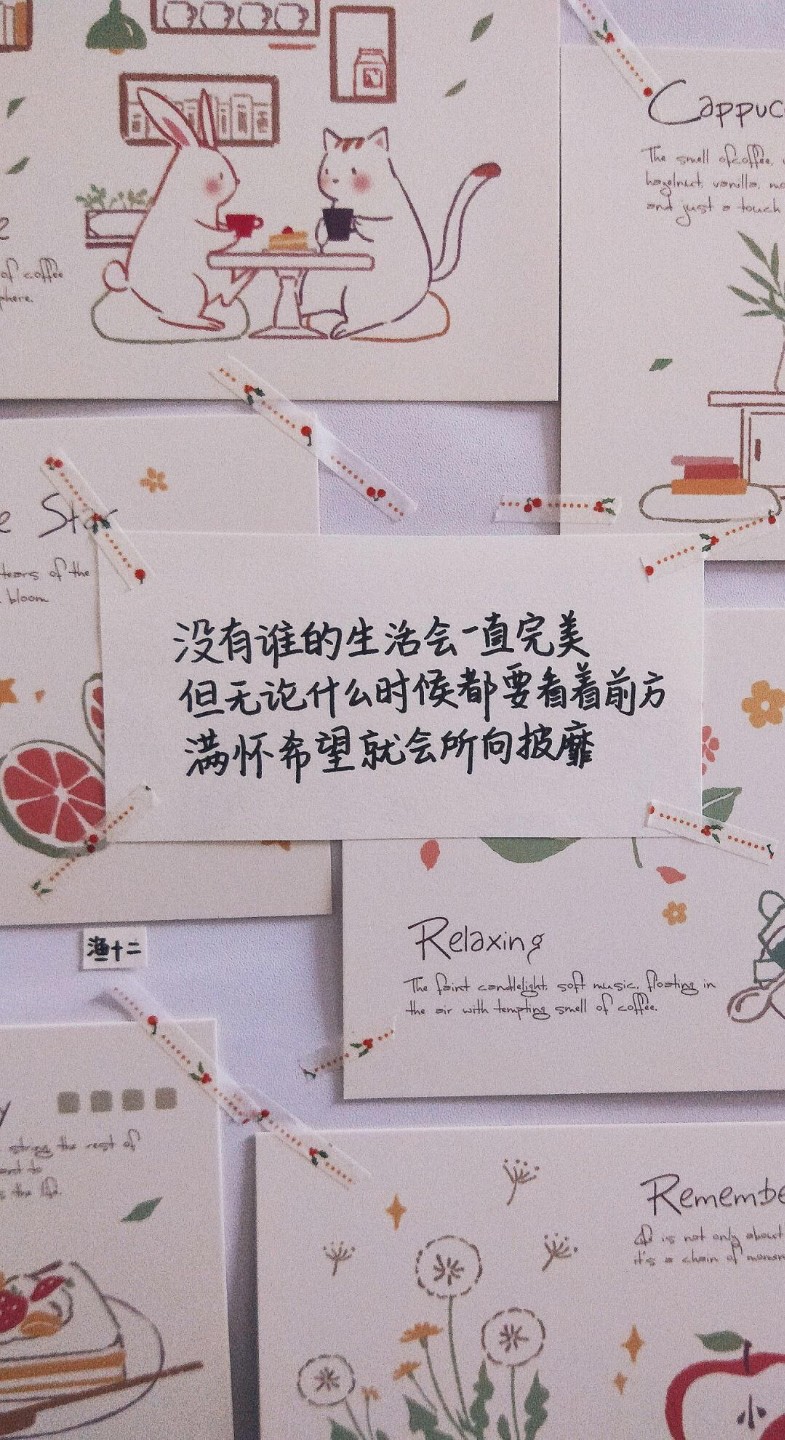 Cappuc
The smell of coffee,
hazelnut, vanilla,
and just a touch
of coffee
phere.
e Star
tears of the
bloom
没有谁的生活会一直完美
但无论什么时候都要看着前方
满怀希望就会所向披靡
Relaxing
The faint candlelight, soft music, floating in
the air with tempting smell of coffee.
渔十二
y
string the rest of
s the life.
Remembe
is not only about
it's a chain of momen
小